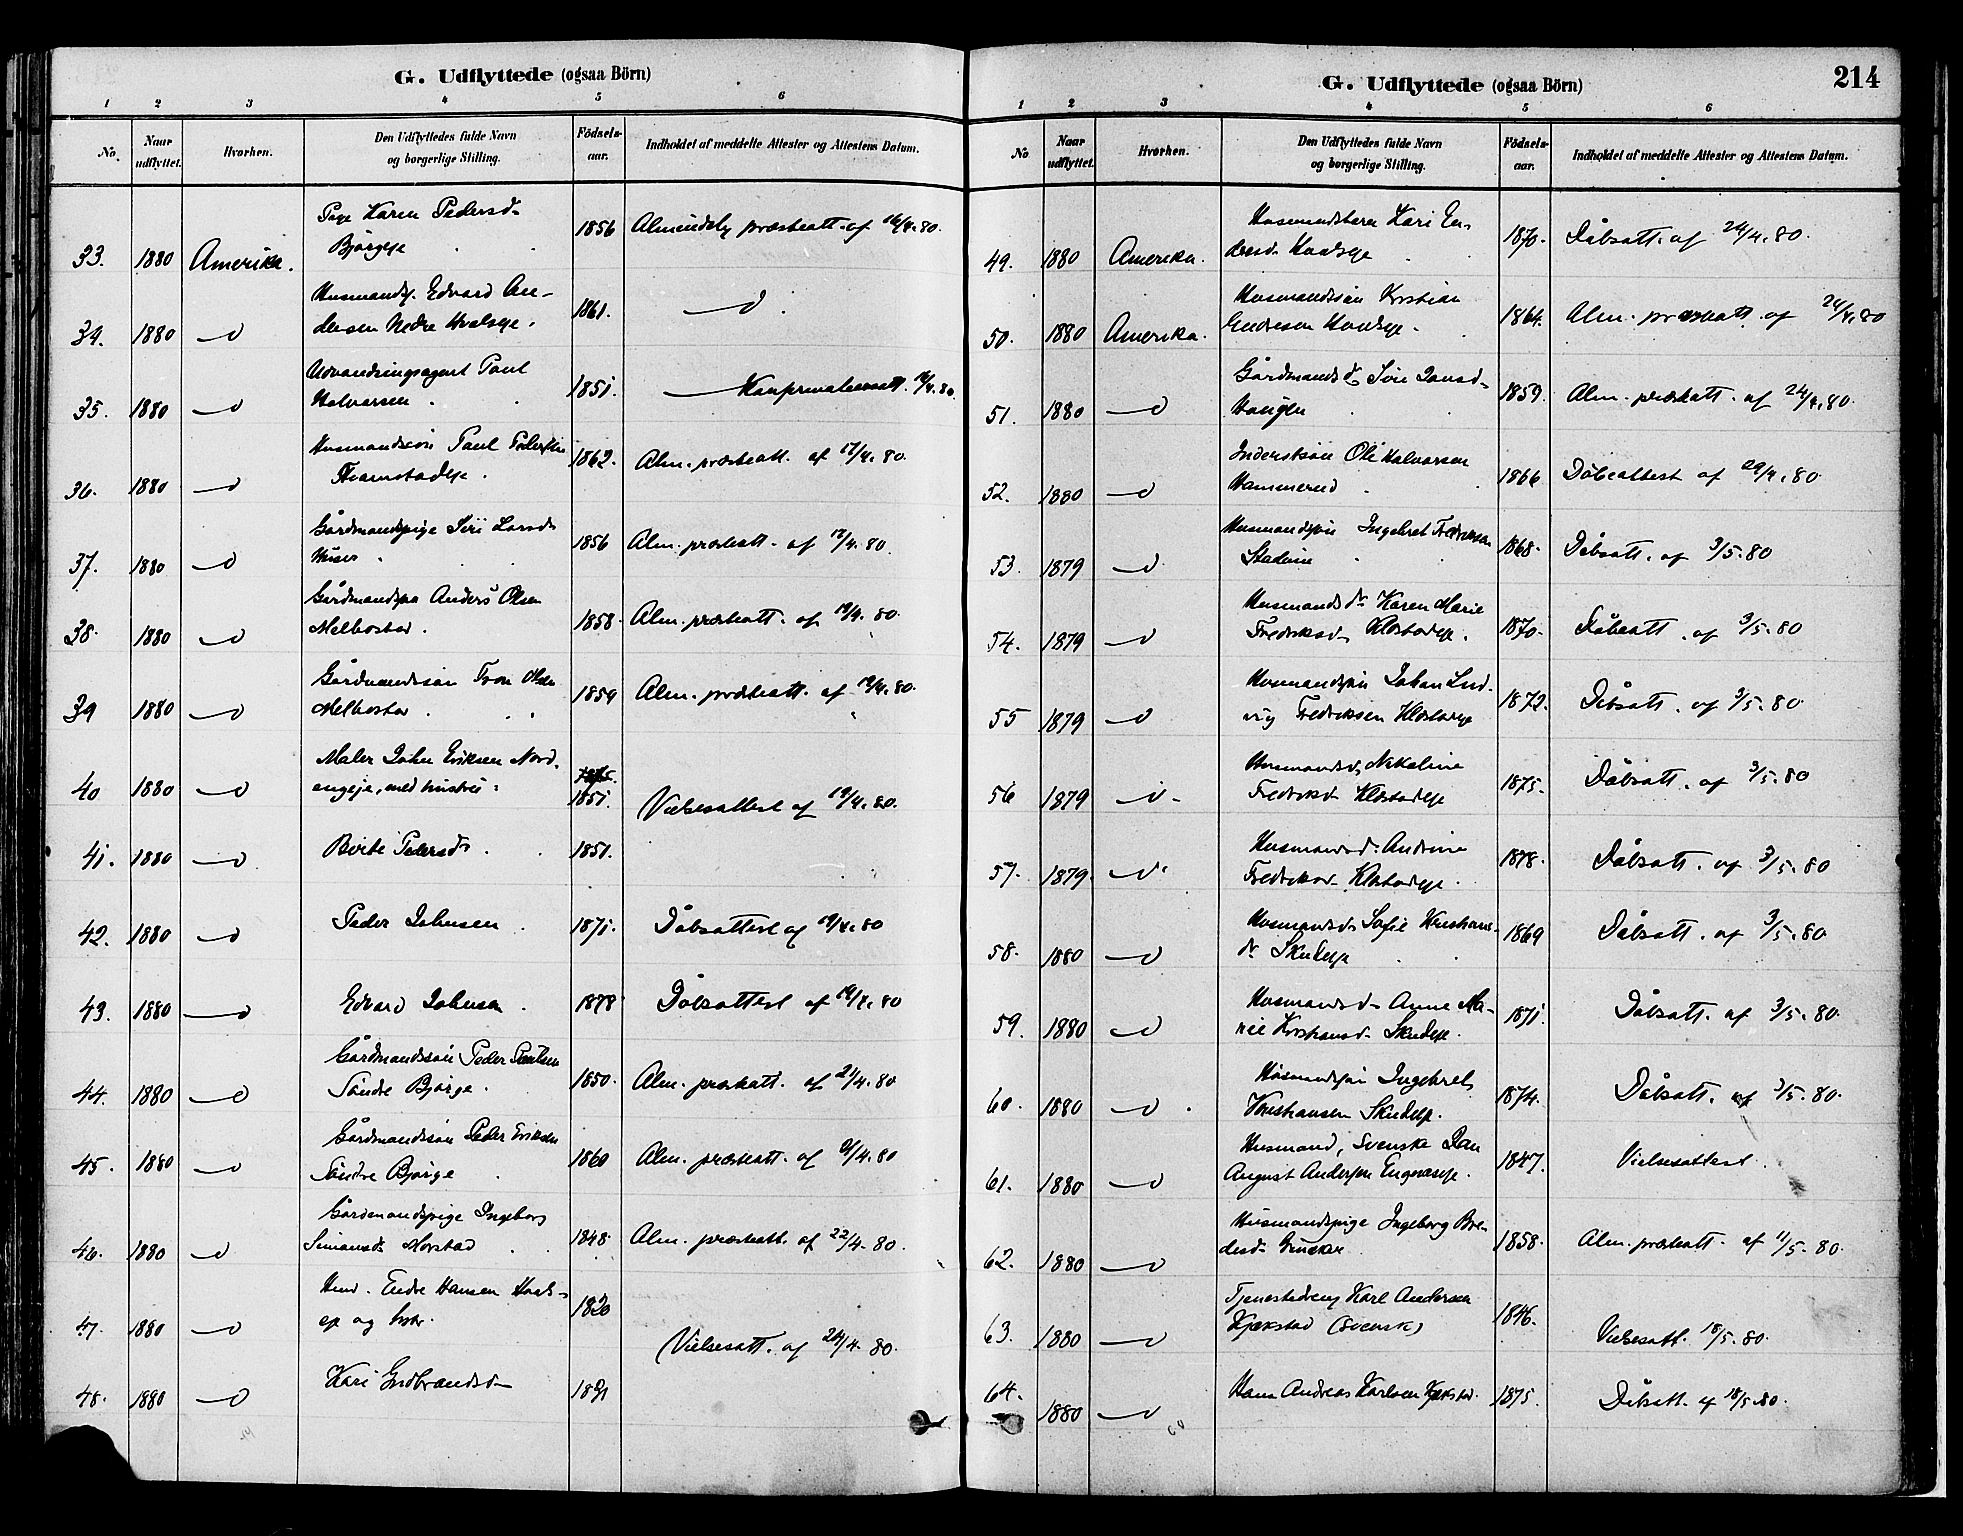 G. Udflyttede (ogsaa Börn)
1 2 3 4 5 6
No. Naar udflyttet. Hvorhen. Den Udflyttedes fulde Navn og borgerlige Stilling. Födsels-aar. Indholdet af meddelte Attester og Attestens Datum.
33. 1880 Amerika. Pige Karen Pedersdr
Bjørgeje 1856 Almindelig præsteatt. af 16/4.80.
34. 1880 —d Husmands. Edvard An-
dersen Nedre Hvalseje. 1861. —d.
35. 1880 —d Udvandringsagent Paul
Halvorsen. 1851. Konfirmationsatt. 16/4.80.
36. 1880 —d Husmandssøn Paul Pedersen
1862. Alm. præsteatt. af 17/4.80.
37. 1880 —d Gårdmandspige Siri Larsdr
1856 Alm. præsteatt. af 17/4.80.
38. 1880 —d Anders Olsen
Melbostad. 1858. Alm. præsteatt. af 19/4.80.
39 1880 —d Gårdmandssøn Tron Olsen
Melbostad. 1859 Alm. præsteatt. af 19/4.80.
40 1880 —d Maler Johan Eriksen Nord-
engeje, med hustru: 1851. Vielsesattest af 19/4.80.
41. 1880 —d Berte Pedersdr. 1851.
42. 1880 —d Peder Johnsen. 1871. Dåbsattest af 19/4.80
43. 1880 —d Edvard Johnsen. 1878 Dåbsattest af 19/4.80
44. 1880 —d Gårdmandssøn Peder Paulsen
Søndre Bjørge. 1850. Alm. præsteatt. af 21/4.80
45. 1880 —d Gårdmandssøn Peder Eriksen
Søndre Bjørge 1860 Alm. præsteatt. af 21/4.80
46. 1880 —d Gårdmandspige Ingeborg
Simensdr. Morstad 1848. Alm. præsteatt. af 22/4.80.
47. 1880 —d Husmd. Endre Hansen Hvals-
eje og hstr. 1820 Vielsesatt. af 24/4.80.
48. 1880 —d Kari Gudbrandsdr 1821

G. Udflyttede (ogsaa Börn) 214
1 2 3 4 5 6
No Naar udflyttet. Hvorhen. Den Udflyttedes fulde Navn og borgerlige Stilling. Födsels-aar. Indholdet af meddelte Attester og Attestens Datum.
49. 1880 Amerika. Husmandsbarn Kari En-
dresdr. Hvalseje 1870. Dåbsatt. af 24/4.80.
50. 1880 Amerika. Husmandssøn Kristian
Endresen Hvalseje. 1864. Alm. præsteatt. af 24/4.80
51. 1880 —d Gårdmandsdr. Siri Larsd-
Haugen 1859. Alm. præsteatt. af 24/4.80.
52. 1880 —d Inderstsøn Ole Halvorsen
Hammerud. 1866 Dåbsattest af 29/4.80
53. 1879 —d Husmandssøn Ingebret Fredriksen
1868. Dåbsatt. af 3/5.80
54. 1879 —d Husmandsdr. Karen Marie
Fredriksdr. Klæstadeje. 1870. Dåbsatt. af 3/5.80
55 1879 —d Husmandssøn Johan Lud-
vig Fredriksen Klæstadeje 1872. Dåbsatt. af 3/5.80.
56 1879 —d Husmandsdr. Nikoline
Fredriksd. Klæstadeje 1875. Dåbsatt. af 3/5.80
57. 1879. —d. Husmandsd. Andrine
Fredriksd. Klæstadeje. 1878. Dåbsatt. af 3/5.80
58. 1880 —d Husmandsdr Sofie Kristians-
dr. Skudeje 1869 Dåbsatt. af 3/5.80
59. 1880 —d Husmandsd. Anne Ma-
rie Kristiansd. Skudeje. 1871. Dåbsatt. af 3/5.80.
60. 1880 —d Husmandssøn Ingebret
Kristiansen Skudeje. 1874. Dåbsatt. af 3/5.80.
61. 1880 —d Husmand, svenske Jan
August Andersen 1847. Vielsesattest.
62. 1880 —d Husmandspige Ingeborg Bre-
desdr. 1858. Alm. præsteatt. af 11/5.80.
63. 1880 —d Tjenestedreng Karl Andersen
Kjekstad (svensk) 1846. Vielsesatt. 18/5.80.
64. 1880 —d Hans Andreas Karlsen Kjekstad. 1875. Dåbsatt. af 18/5.80.